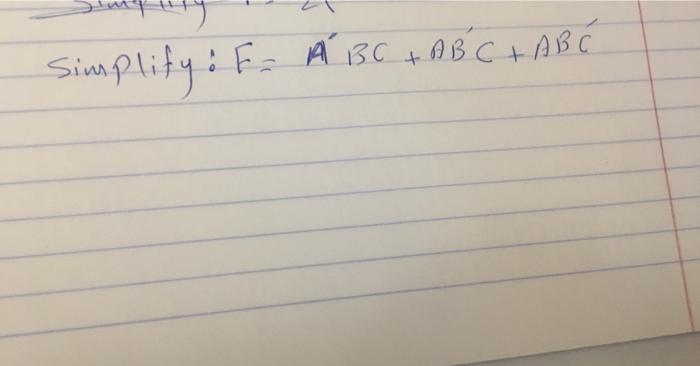 Simplify
Simplify: F = A´BC + AB´C + ABC´